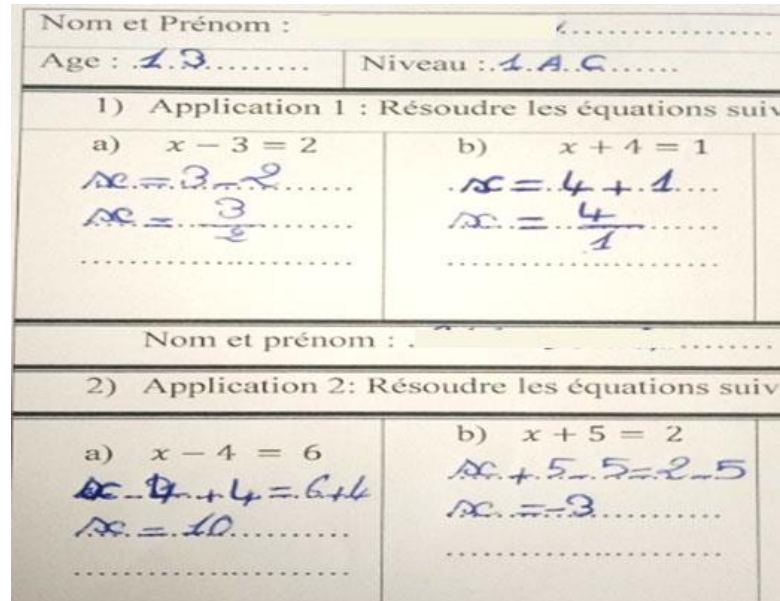 Nom et Prénom : ..................
Age : .1.3......... Niveau :.1.A..C......
1) Application 1 : Résoudre les équations suiv
a) x − 3 = 2 b) x + 4 = 1
x = 3 - 2 x = 4 + 1
x = 3/2 x = 4/1
Nom et prénom : .
2) Application 2: Résoudre les équations suiv
a) x − 4 = 6 b) x + 5 = 2
x - 4 + 4 = 6 + 4 x + 5 - 5 = 2 - 5
x = 10 x = -3